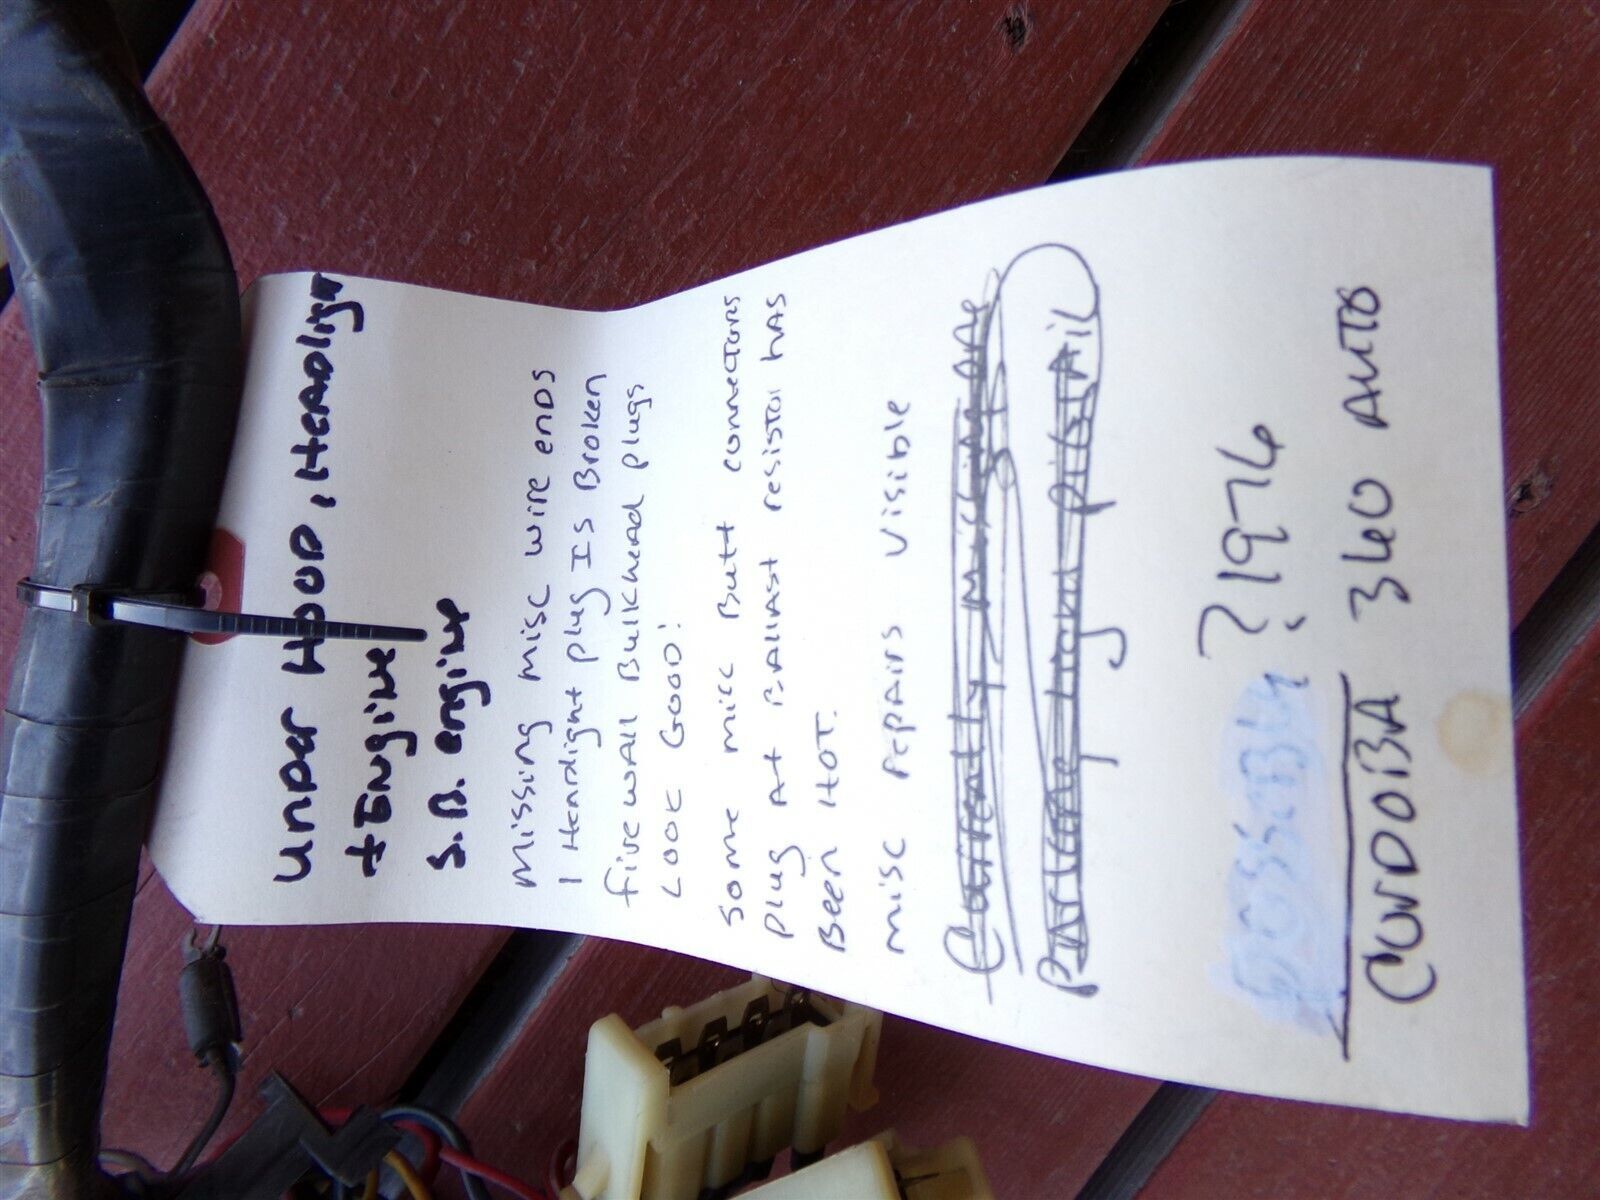 UNDER HOOD, HEADLIGHT
+ ENGINE
S.B. engine
Missing misc wire ends
1 Headlight plug IS Broken
firewall Bulkhead plugs
LOOK GOOD!
some misc Butt connectors
plug At Ballast resistor has
Been HOT.
misc repairs visible
Currently missing one
? 1976
CORDOBA 360 AUTO